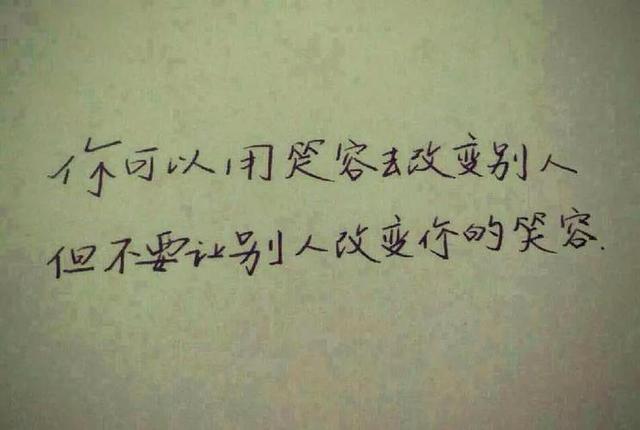 你可以用笑容去改变别人
但不要让别人改变你的笑容.